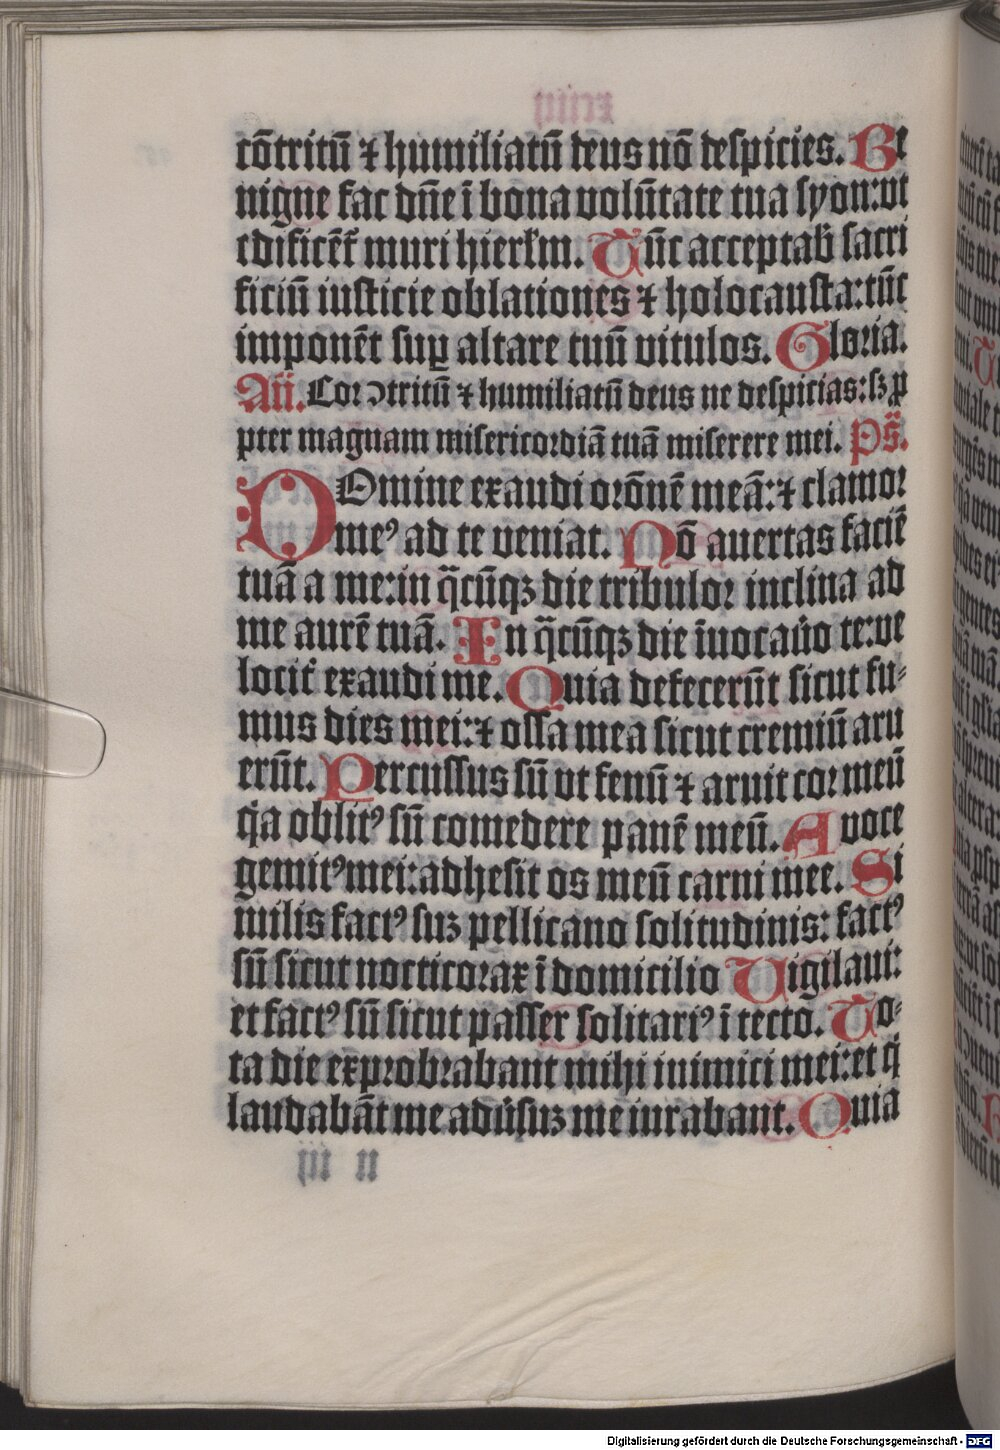 cōtritū ⁊ humiliatū deus nō despicies. Be
nigne fac dn̄e ī bona volūtate tua syon: vt
edificēt᷑ muri hierl̄m. Tūc acceptab̄ sacri
ficiū iusticie oblationes ⁊ holocausta: tūc
imponēt suꝑ altare tuū vitulos. Gloria.
Añ. Cor ↄtritū ⁊ humiliatū deus ne despicias: sꝫ ꝓ
pter magnam misericordiā tuā miserere mei. Ps̄.
DOmine exaudi orōnē meā: ⁊ clamor
meꝰ ad te veniat. Nō auertas faciē
tuā a me: in q̄cūqꝫ die tribulor inclina ad
me aurē tuā. In q̄cūqꝫ die īuocaūo te: ve
locit᷑ exaudi me. Quia defecerūt sicut fu-
mus dies mei: ⁊ ossa mea sicut cremiū aru
erūt. Percussus sū vt fenū ⁊ aruit cor meū
q̇a oblitꝰ sū comedere panē meū. A voce
gemitꝰ mei: adhesit os meū carni mee. Si
milis factꝰ suꝫ pellicano solitudinis: factꝰ
sū sicut nocticorax ī domicilio Vigilaui:
et factꝰ sū sicut passer solitariꝰ ī tecto. To-
ta die exprobrabant mihi inimici mei: et q̇
laudabāt me adūsuꝫ me iurabant. Quia